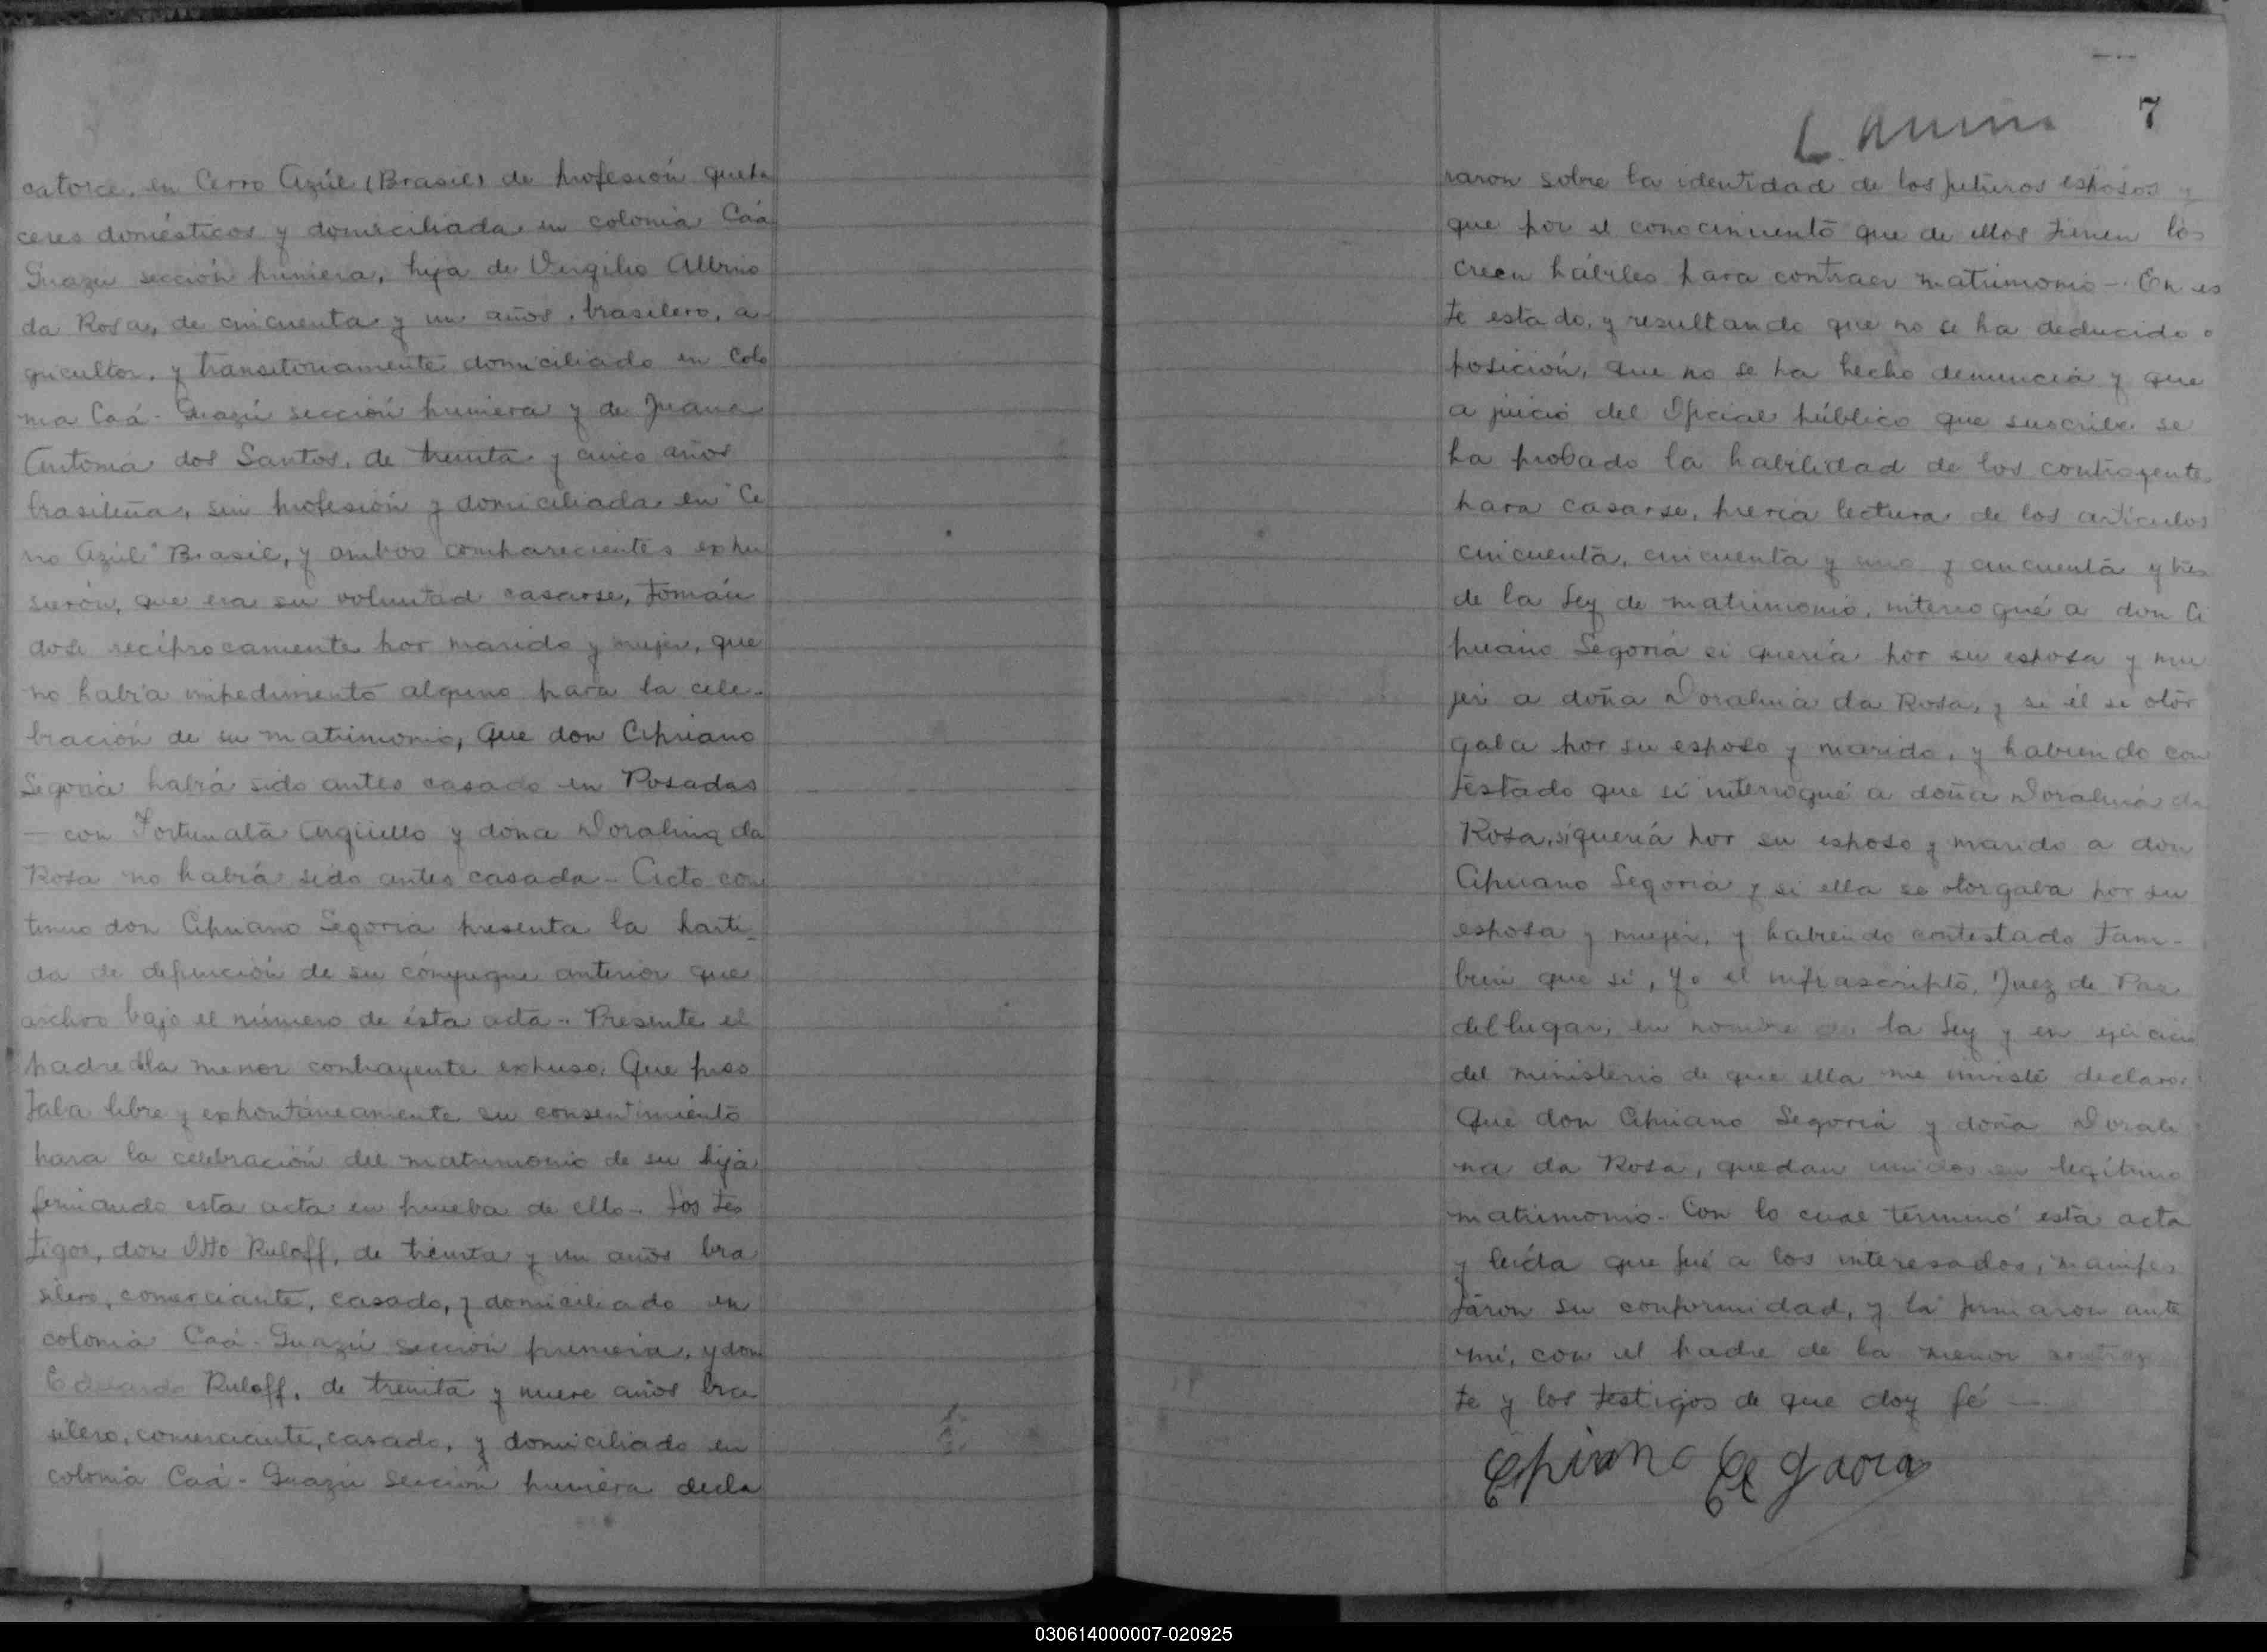 catorce, en Cerro Azúl (Brasil) de profesión queha
ceres domésticos y domiciliada en colonia Caá
Guazú sección primera, hija de Virgilio Albino
da Rosa, de cincuenta y un años, brasilero, a
gricultor, y transitoriamente domiciliado en Colo
nia Caá-Guazú sección primera y de Juana
Antonia dos Santos, de treinta y cinco años
brasileña, sin profesión y domiciliada en "Ce
rro Azúl" Brasil, y ambos comparecientes expu
sierón, que era su voluntad casarse, tomán
dose recíprocamente por marido y mujer, que
no había impedimento alguno para la cele-
bración de su matrimonio, Que don Cipriano
Segovia había sido antes casado en Posadas
— con Fortunata Argüello y dona Doralina da
Rosa no había sido antes casada - Acto con
tinuo don Cipriano Segovia presenta la parti-
da de defunción de su cónyugue anterior que
archivo bajo el número de ésta acta - Presente el
padre dla menor contrayente expuso, Que pres
taba libre y expontáneamente su consentimiento
para la celebración del matrimonio de su hija
firmando esta acta en prueba de ello - Los tes
tigos, don Otto Ruloff, de treinta y un años bra
silero, comerciante, casado, y domiciliado en
colonia Caá-Guazú sección primera, y don
Eduardo Ruloff, de treinta y nueve años bra
silero, comerciante, casado, y domiciliado en
colonia Caá-Guazú sección primera decla
7
raron sobre la identidad de los futuros esposos y
que por el conocimiento que de ellos tienen los
creen hábiles para contraer matrimonio - En es
te estado, y resultando que no se ha deducido o
posición, que no se ha hecho denuncia y que
a juicio del Oficial público que suscribe se
ha probado la habilidad de los contrayentes
para casarse, previa lectura de los artículos
cincuenta, cincuenta y uno y cincuenta y tres
de la Ley de matrimonio, interrogué a don Ci
priano Segovia si quería por su esposa y mu
jer a doña Doralina da Rosa, y si él se otor
gaba por su esposo y marido, y habiendo con
testado que sí interrogué a doña Doralina da
Rosa, si quería por su esposo y marido a don
Cipriano Segovia y si ella se otorgaba por su
esposa y mujer, y habiendo contestado tam-
bien que sí, Yo el infrascripto, Juez de Paz
del lugar, en nombre de la Ley y en ejercicio
del ministerio de que ella me inviste declaro:
Que don Cipriano Segovia y doña Dorali
na da Rosa, quedan unidos en legítimo
matrimonio - Con lo cual terminó esta acta
y leída que fué a los interesados, manifes
taron su conformidad, y la firmaron ante
mí, con el padre de la menor contrayen
te y los testigos de que doy fé —
Cipriano Segovia
030614000007-020925